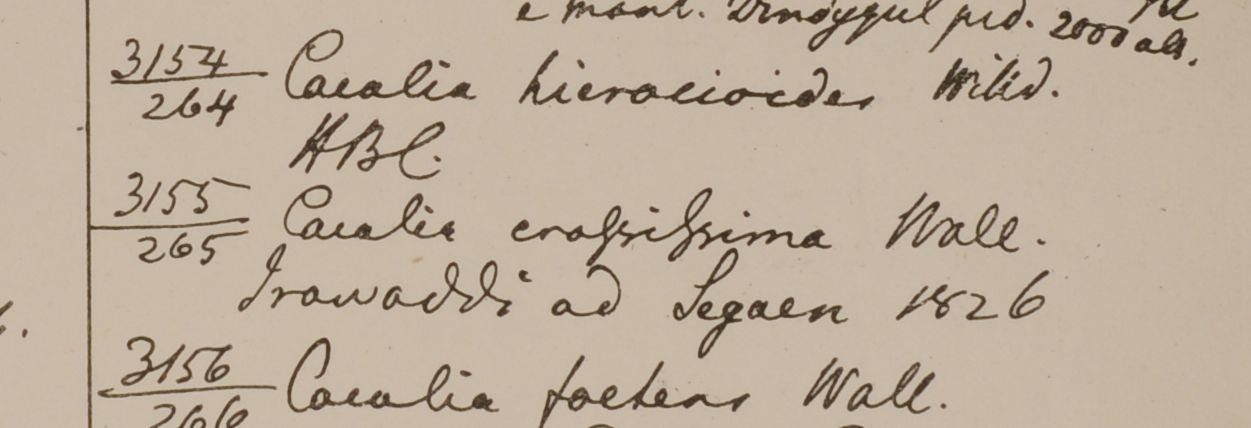 e mont. Dindygul ped. 2000 alt.
3154
264 Cacalia hieracioides Willd.
HBC.
3155
265 Cacalia crassissima Wall.
Irawaddi ad Segaen 1826
3156
266 Cacalia foetens Wall.